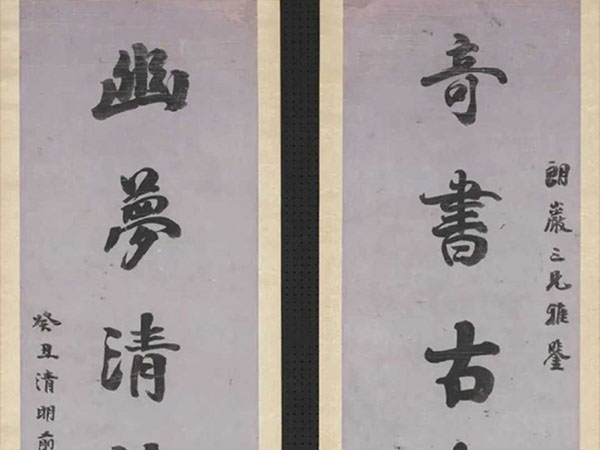 朗巖三兄雅鑒
奇書古
幽夢清
癸丑清明前